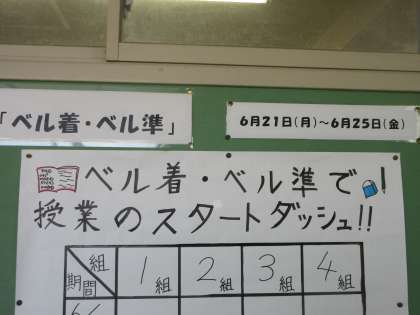 「ベル着・ベル準」
6月21日(月)～6月25日(金)
ベル着・ベル準で
授業のスタートダッシュ!!
組 1組 2組 3組 4組
期間